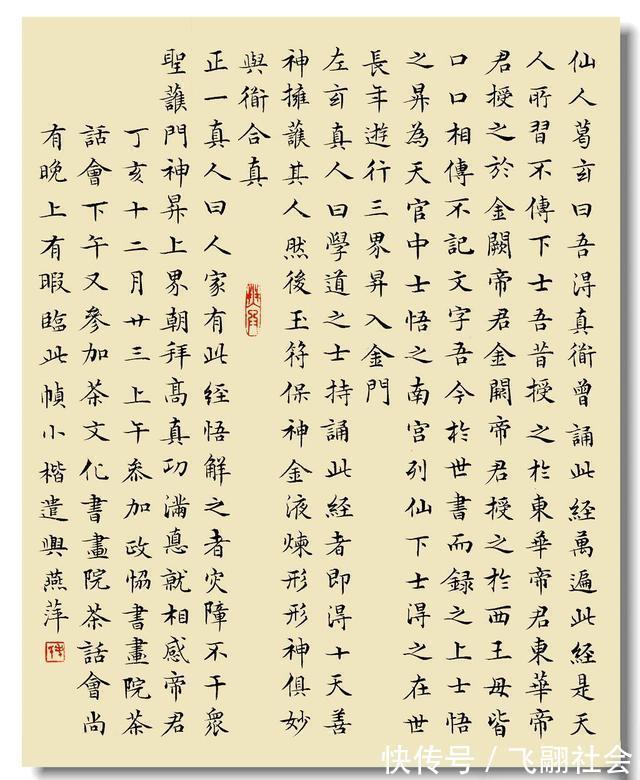 仙人葛玄曰吾淂真衜曾誦此經萬遍此經是天
人所習不傳下士吾昔授之於東華帝君東華帝
君授之於金闕帝君金闕帝君授之於西王母皆
口口相傳不記文字吾今於世書而録之上士悟
之昇為天官中士悟之南宮列仙下士得之在世
長年遊行三界昇入金門
左玄真人曰學道之士持誦此經者即得十天善
神擁護其人然後玉符保神金液煉形形神俱妙
與衜合真
正一真人曰人家有此經悟解之者灾障不干衆
聖護門神昇上界朝拜高真功滿悳就相感帝君
丁亥十二月廿三上午叅加政協書畫院茶
話會下午又參加茶文化書畫院茶話會尚
有晚上有暇臨此幀小楷遣興燕萍
快传号/飞翮社会